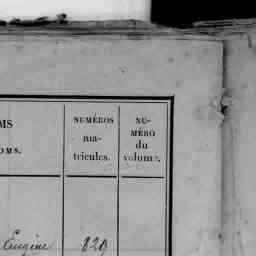 MS
OMS.
NUMÉROS
ma-
tricules.
NU-
MÉRO
du
volume.
Eugène 829